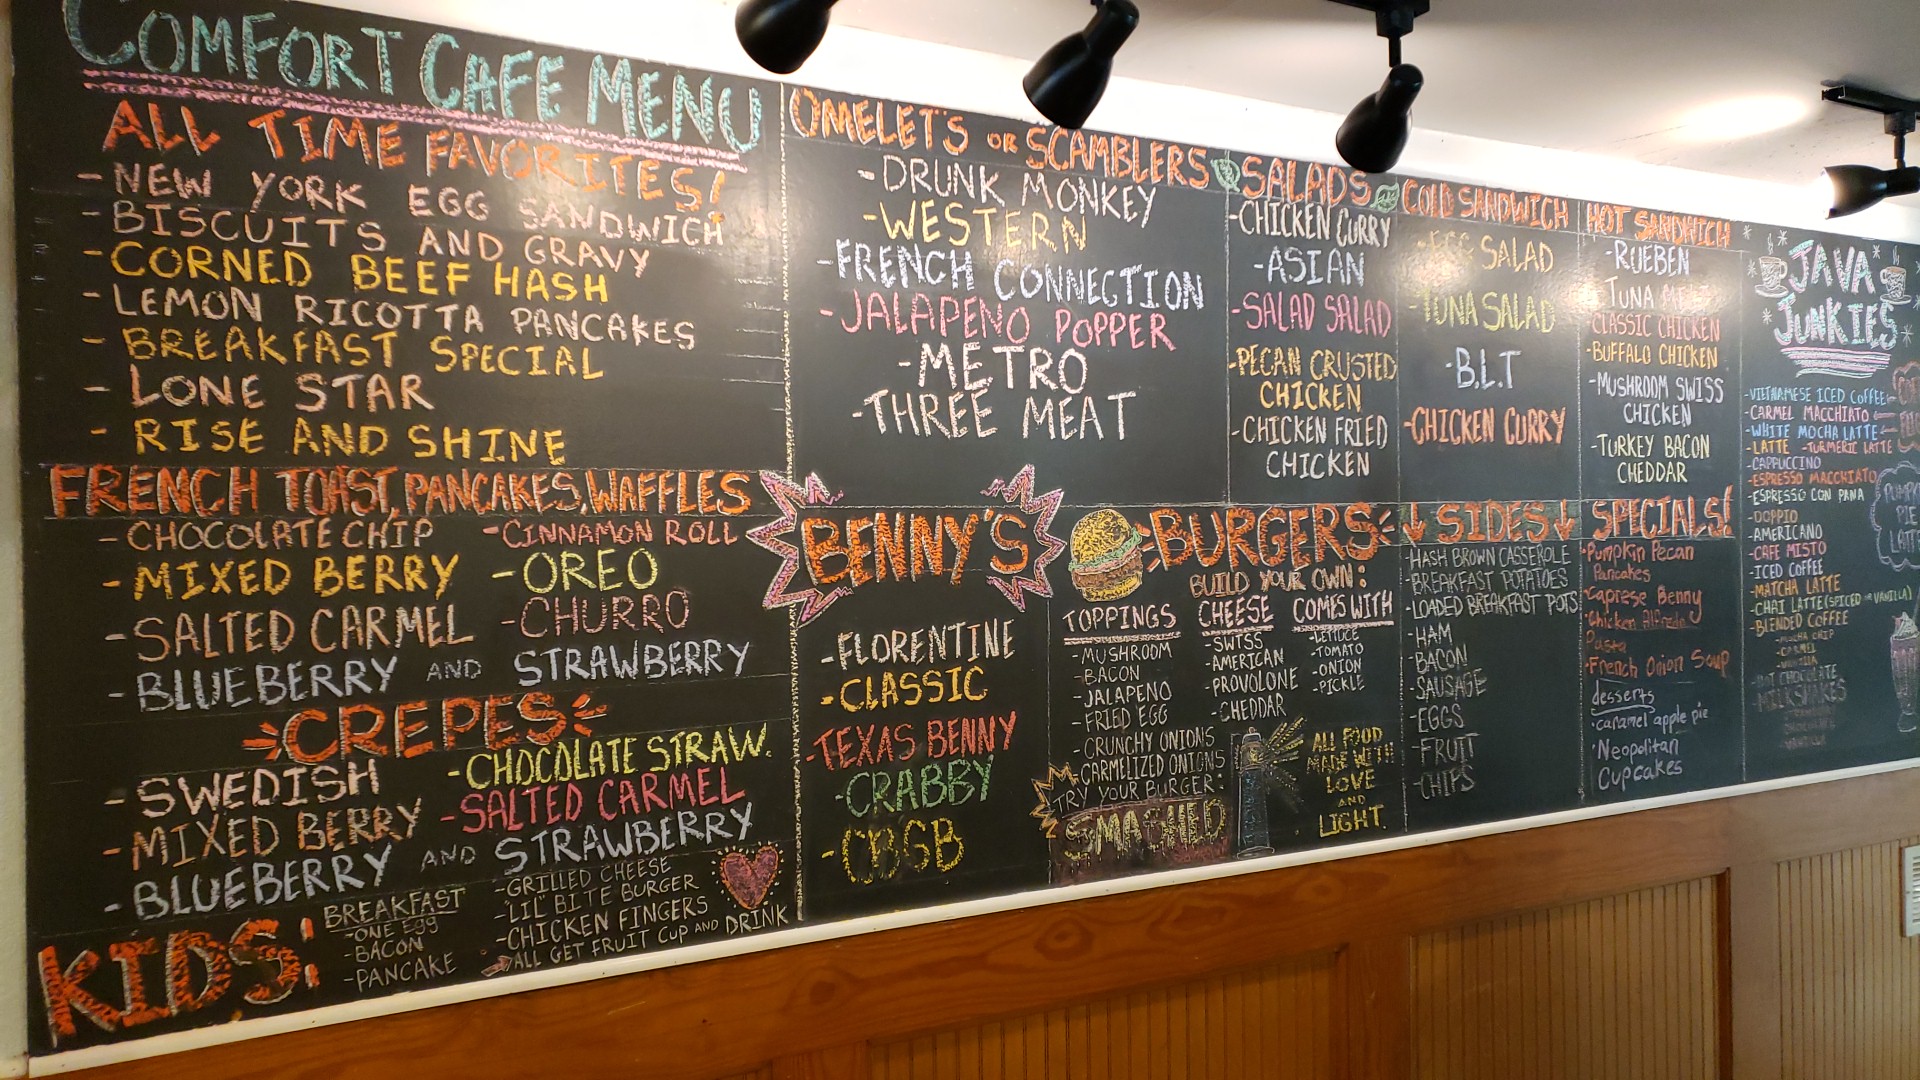 COMFORT CAFE MENU
ALL TIME FAVORITES!
-NEW YORK EGG SANDWICH
-BISCUITS AND GRAVY
-CORNED BEEF HASH
-LEMON RICOTTA PANCAKES
-BREAKFAST SPECIAL
-LONE STAR
-RISE AND SHINE
FRENCH TOAST, PANCAKES, WAFFLES
-CHOCOLATE CHIP
-MIXED BERRY
-SALTED CARMEL
-CINNAMON ROLL
-OREO
-CHURRO
-BLUEBERRY AND STRAWBERRY
CREPES
-SWEDISH
-MIXED BERRY
-CHOCOLATE STRAW.
-SALTED CARMEL
-BLUEBERRY AND STRAWBERRY
KIDS:
BREAKFAST
-ONE EGG
-BACON
-PANCAKE
-GRILLED CHEESE
-"LIL" BITE BURGER
-CHICKEN FINGERS
ALL GET FRUIT CUP AND DRINK
OMELETS OR SCAMBLERS
-DRUNK MONKEY
-WESTERN
-FRENCH CONNECTION
-JALAPENO POPPER
-METRO
-THREE MEAT
BENNY'S
-FLORENTINE
-CLASSIC
-TEXAS BENNY
-CRABBY
-CBGB
SALADS
-CHICKEN CURRY
-ASIAN
-SALAD SALAD
-PECAN CRUSTED
CHICKEN
-CHICKEN FRIED
CHICKEN
COLD SANDWICH
-EGG SALAD
-TUNA SALAD
-B.L.T
-CHICKEN CURRY
HOT SANDWICH
-RUEBEN
-TUNA MELT
-CLASSIC CHICKEN
-BUFFALO CHICKEN
-MUSHROOM SWISS
CHICKEN
-TURKEY BACON
CHEDDAR
BURGERS
BUILD YOUR OWN:
TOPPINGS
-MUSHROOM
-BACON
-JALAPENO
-FRIED EGG
-CRUNCHY ONIONS
-CARMELIZED ONIONS
CHEESE
-SWISS
-AMERICAN
-PROVOLONE
-CHEDDAR
COMES WITH
-LETTUCE
-TOMATO
-ONION
-PICKLE
TRY YOUR BURGER:
SMASHED
ALL FOOD
MADE WITH
LOVE
AND
LIGHT.
↓ SIDES ↓
-HASH BROWN CASSEROLE
-BREAKFAST POTATOES
-LOADED BREAKFAST POTS
-HAM
-BACON
-SAUSAGE
-EGGS
-FRUIT
-CHIPS
SPECIALS!
•Pumpkin Pecan
Pancakes
•Caprese Benny
•Chicken Alfredo
Pasta
•French Onion Soup
desserts
•caramel apple pie
•Neopolitan
Cupcakes
JAVA
JUNKIES
-VIETNAMESE ICED COFFEE
-CARMEL MACCHIATO
-WHITE MOCHA LATTE
-LATTE -TURMERIC LATTE
-CAPPUCCINO
-ESPRESSO MACCHIATO
-ESPRESSO CON PANA
-DOPPIO
-AMERICANO
-CAFE MISTO
-ICED COFFEE
-MATCHA LATTE
-CHAI LATTE (SPICED OR VANILLA)
-BLENDED COFFEE
-MOCHA CHIP
-CARMEL
-VANILLA
-HOT CHOCOLATE
-MILKSHAKES